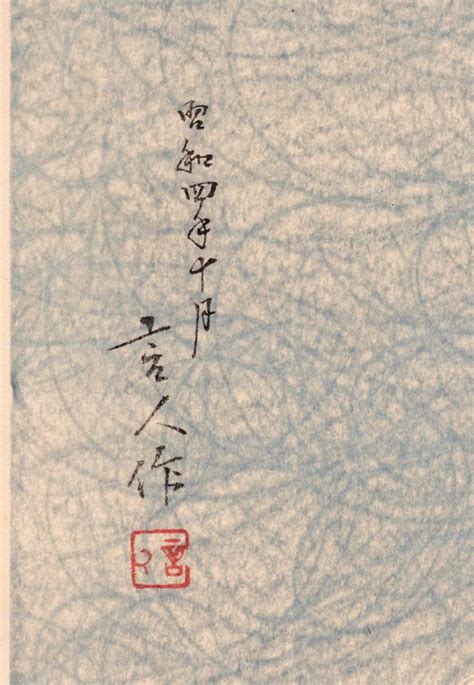 昭和四年十月
言人作
言人